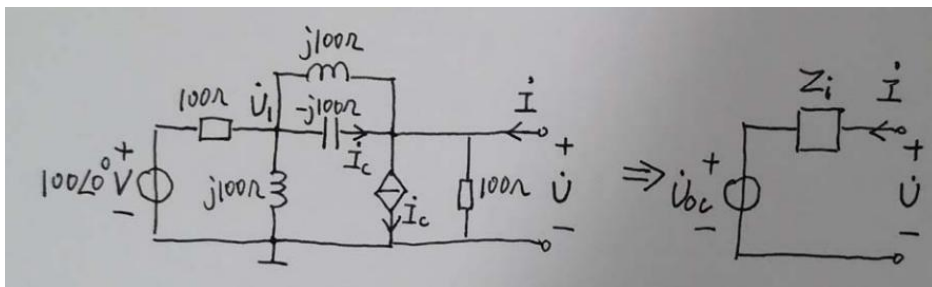 j100Ω
100Ω
U̇₁
-j100Ω
İ
Zi
İ
+
100∠0°V
-
j100Ω
İc
İc
100Ω
+
U̇
-
⇒
+
U̇oc
-
+
U̇
-